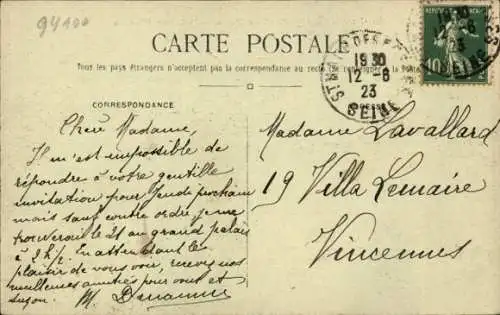 94100
CARTE POSTALE
Tous les pays étrangers n'acceptent pas la correspondance au recto (Se renseigner à la Poste)
19 30
12-6
23
SEINE
12-6
23
SEINE
10
CORRESPONDANCE
Chère Madame,
Il m'est impossible de
répondre à votre gentille
invitation pour Jeudi prochain
mais sauf contre ordre je me
trouverai le 21 au grand palais
à 2h/2. En attendant le
plaisir de vous voir, recevez nos
meilleures amitiés pour vous et
M.
Madame Lavallard
19 Villa Lemaire
Vincennes